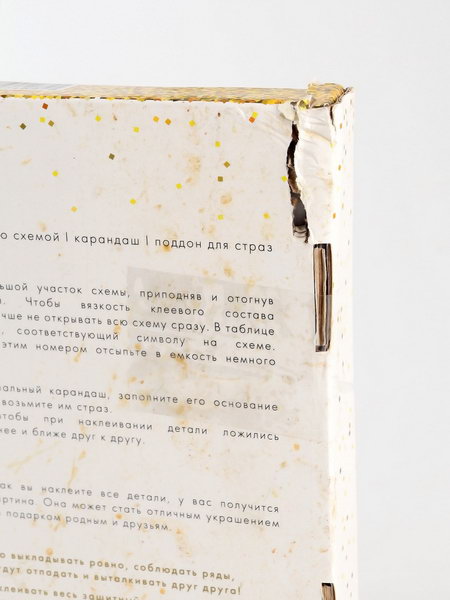 о схемой | карандаш | поддон для страз
участок схемы, приподняв и отогнув
Чтобы вязкость клеевого состава
не открывать всю схему сразу. В таблице
соответствующий символу на схеме.
этим номером отсыпьте в емкость немного
карандаш, заполните его основание
возьмите им страз.
при наклеивании детали ложились
и ближе друг к другу.
как вы наклеите все детали, у вас получится
Она может стать отличным украшением
подарком родным и друзьям.
о выкладывать ровно, соблюдать ряды,
отпадать и выталкивать друг друга!
весь